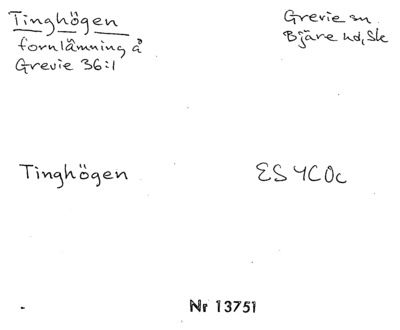 Tinghögen
fornlämning å
Grevie 36:1
Grevie sn
Bjäre hd, Sk
Tinghögen
ES 4C0c
Nr 13751